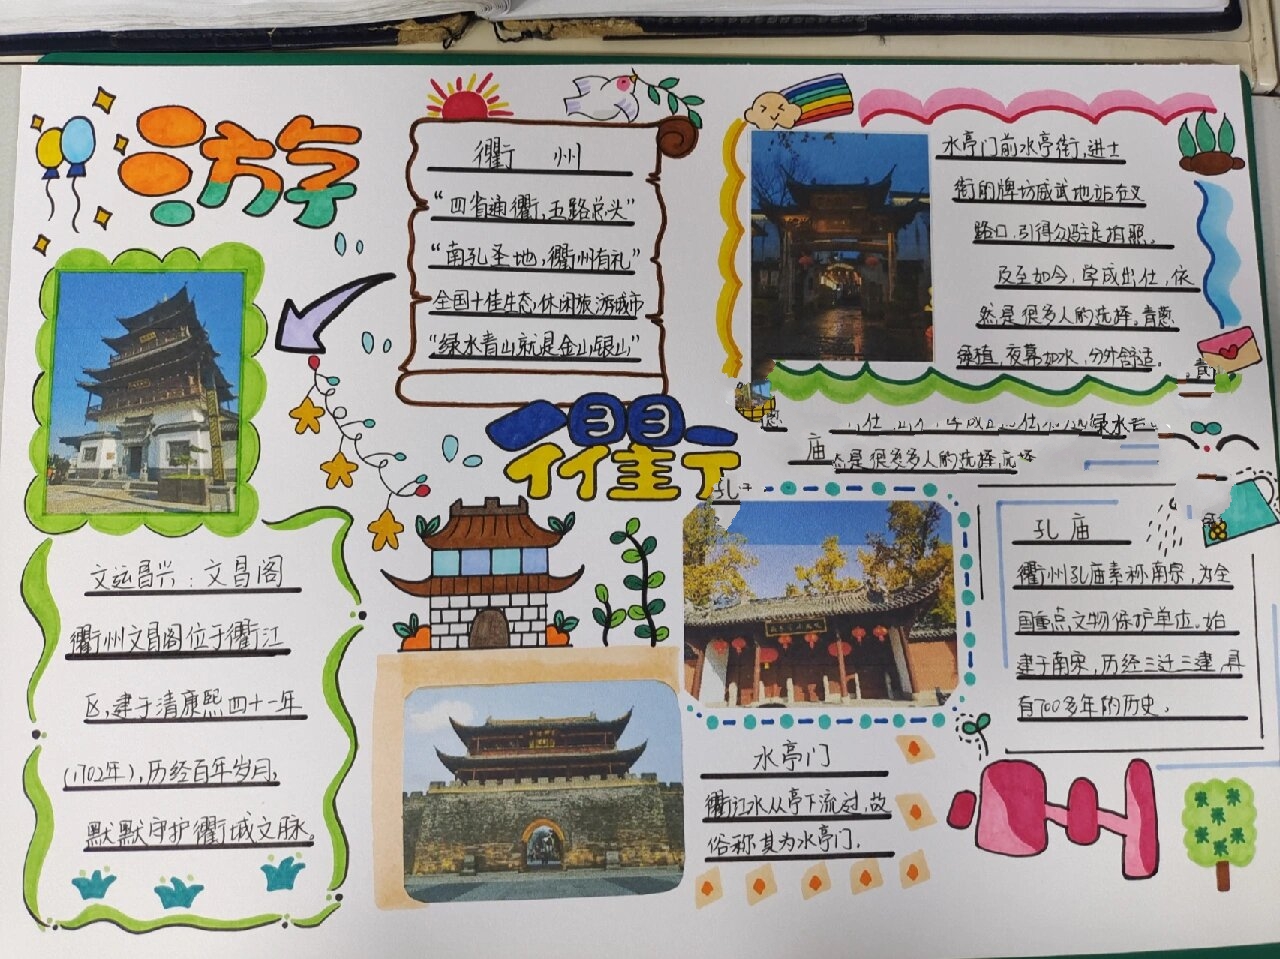 游
衢
州
衢 州
“四省通衢，五路总头”
“南孔圣地，衢州有礼”
全国十佳生态，休闲旅游城市
“绿水青山就是金山银山”
文运昌兴：文昌阁
衢州文昌阁位于衢江
区，建于清康熙四十一年
(1702年)，历经百年岁月，
默默守护衢城文脉。
水亭门前水亭街，进士
街的牌坊威武地站在叉
路口，引得众驻足拍照。
及至如今，学成出仕，依
然是很多人的选择。青葱
夜幕如水，分外舒适。
绿水
庙
态是很多多人的选择
孔 庙
衢州孔庙素称南宗，为全
国重点文物保护单位。始
建于南宋，历经三迁三建，具
有700多年的历史。
水亭门
衢江水从亭下流过，故
俗称其为水亭门。